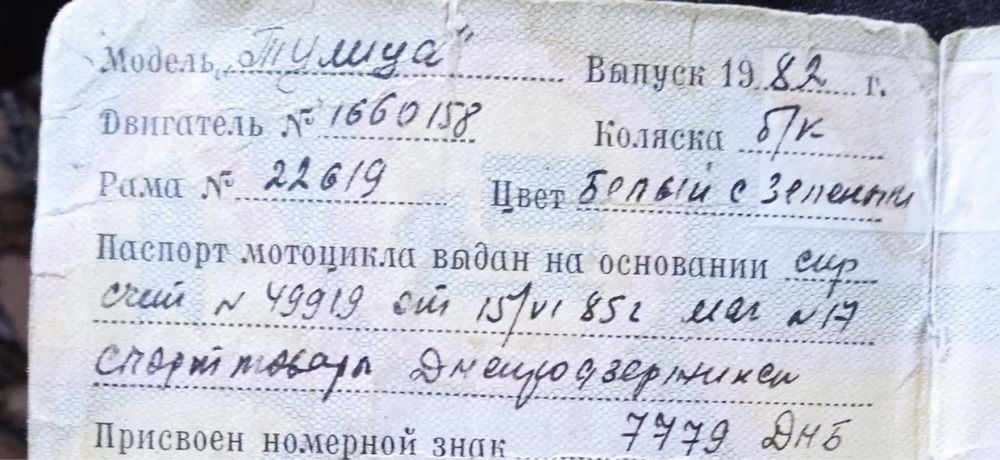 Модель „Тулица" Выпуск 1982 г.
Двигатель № 1660158 Коляска б/к
Рама № 22619 Цвет Белый с зеленым
Паспорт мотоцикла выдан на основании спр
счет N 49919 от 15/VI 85г маг N 17
спорттовары Днепродзержинск
Присвоен номерной знак 7779 ДНБ